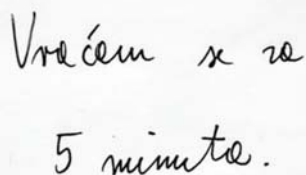 Vraćam se za
5 minuta.